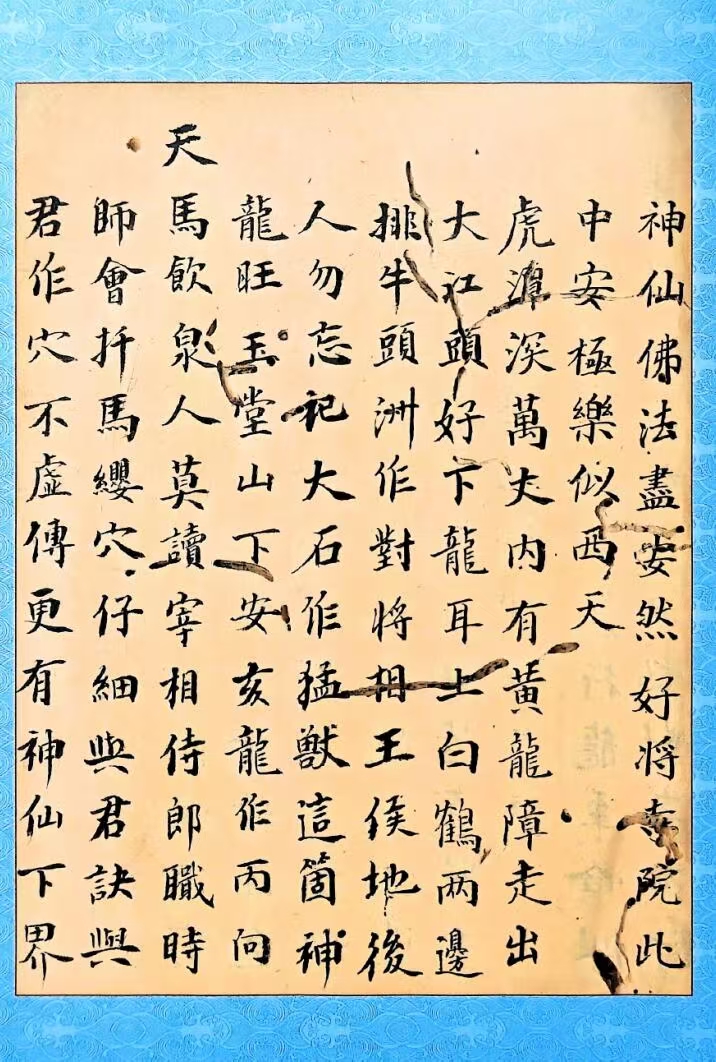 神仙佛法盡安然好將寺院此
中安極樂似西天
虎潭深萬丈內有黃龍障走出
大江頭好下龍耳上白鶴兩邊
排牛頭洲作對將相王侯地後
人勿忘記大石作猛獸這箇神
龍旺玉堂山下安亥龍作丙向
天馬飲泉人莫讀宰相侍郎職時
師會扦馬纓穴仔細與君訣與
君作穴不虛傳更有神仙下界